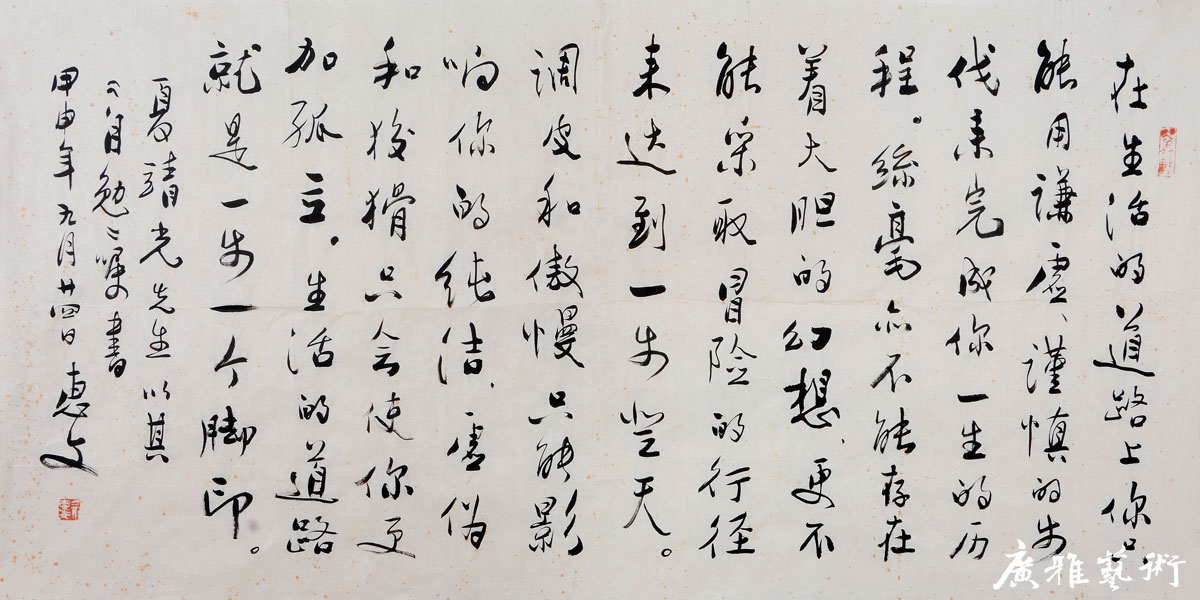 在生活的道路上你只
能用謙虚、謹慎的步
伐来完成你一生的历
程。絲毫亦不能存在
着大胆的幻想、更不
能采取冒险的行径
来达到一步登天。
调皮和傲慢只能影
响你的纯洁、虚伪
和狡猾只会使你更
加孤立。生活的道路
就是一步一个脚印。
夏靖光先生以其
父自勉之嘱書
甲申年九月廿四日 惠文
廣雅藝術